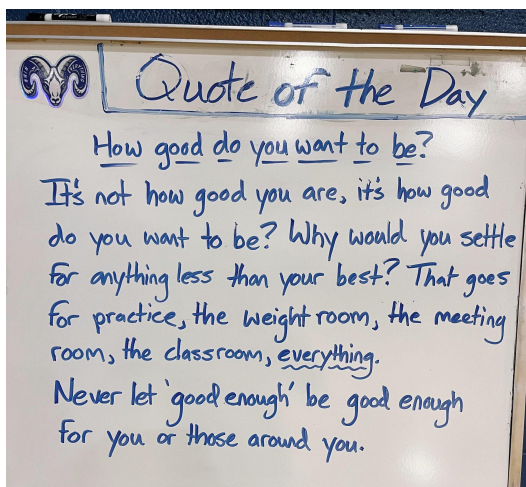 Quote of the Day
How good do you want to be?
It's not how good you are, it's how good
do you want to be? Why would you settle
for anything less than your best? That goes
for practice, the weight room, the meeting
room, the classroom, everything.
Never let 'good enough' be good enough
for you or those around you.